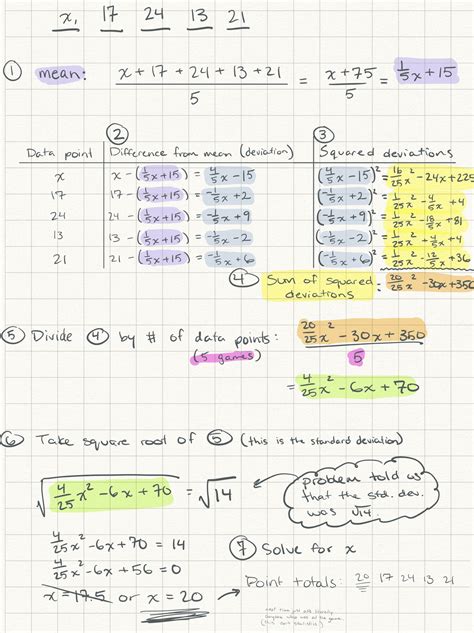 x, 17 24 13 21
① mean: x + 17 + 24 + 13 + 21 / 5 = x + 75 / 5 = 1/5 x + 15
② ③
Data point Difference from mean (deviation) Squared deviations
x x - (1/5 x + 15) = 4/5 x - 15 (4/5 x - 15)² = 16/25 x² - 24x + 225
17 17 - (1/5 x + 15) = -1/5 x + 2 (-1/5 x + 2)² = 1/25 x² - 4/5 x + 4
24 24 - (1/5 x + 15) = -1/5 x + 9 (-1/5 x + 9)² = 1/25 x² - 18/5 x + 81
13 13 - (1/5 x + 15) = -1/5 x - 2 (-1/5 x - 2)² = 1/25 x² + 4/5 x + 4
21 21 - (1/5 x + 15) = -1/5 x + 6 (-1/5 x + 6)² = 1/25 x² - 12/5 x + 36
④ Sum of squared deviations: 20/25 x² - 30x + 350
⑤ Divide ④ by # of data points: 20/25 x² - 30x + 350
(5 games) 5
= 4/25 x² - 6x + 70
⑥ Take square root of ⑤ (this is the standard deviation)
√(4/25 x² - 6x + 70) = √14
problem told us
that the std. dev.
was √14.
4/25 x² - 6x + 70 = 14
⑦ Solve for x
4/25 x² - 6x + 56 = 0
Point totals: 20 17 24 13 21
x = 17.5 or x = 20